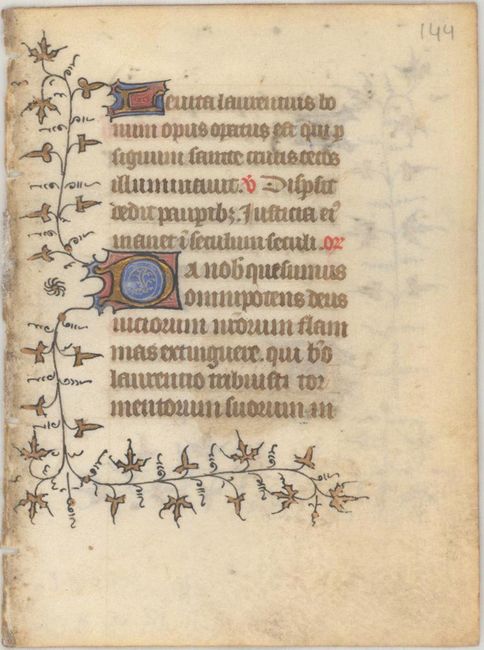 144
Levita laurentius bo
num opus opatus est qui p
signum sancte crucis cecos
illuminavit. V Dispsit
dedit paupibꝫ. Justicia eiꝰ
manet ĩ seculum seculi. oꝛ
Da nob̄ quesumus
omnipotens deus
viciorum nr̄orum flam
mas extinguere. qui b̄o
laurencio tribuisti tor
mentorum suorum in